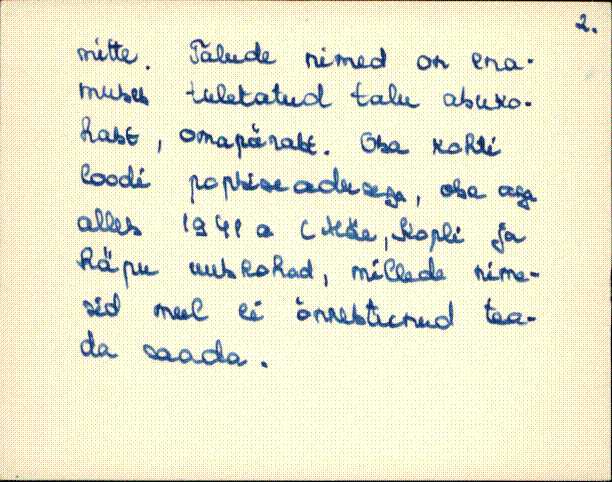 2.
mitte. Talude nimed on ena-
muses tuletatud talu asuko-
hast, omapärast. Osa kohti
loodi popsiseadusega, osa aga
alles 1941 a (Mäe, Kopli ja
Käpu uuskohad, millede nime-
sid meil ei õnnestunud tea-
da saada.